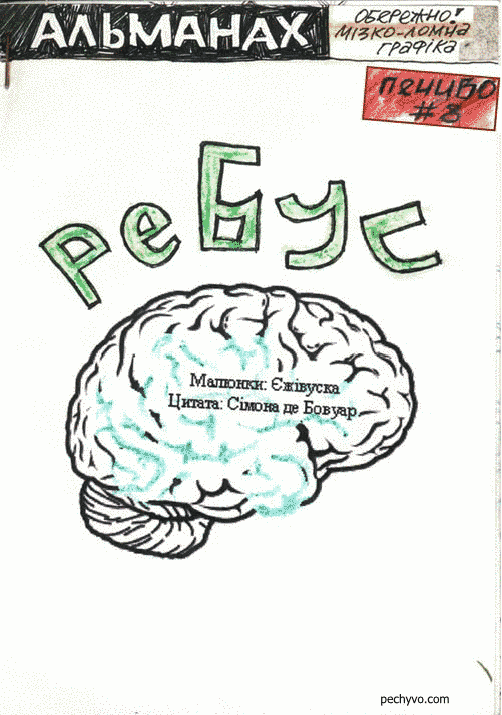 АЛЬМАНАХ
ОБЕРЕЖНО!
МІЗКО-ЛОМНА
ГРАФІКА
ПЕЧИВО
#8
РеБУС
Малюнки: Єжівуска
Цитата: Сімона де Бовуар
pechyvo.com